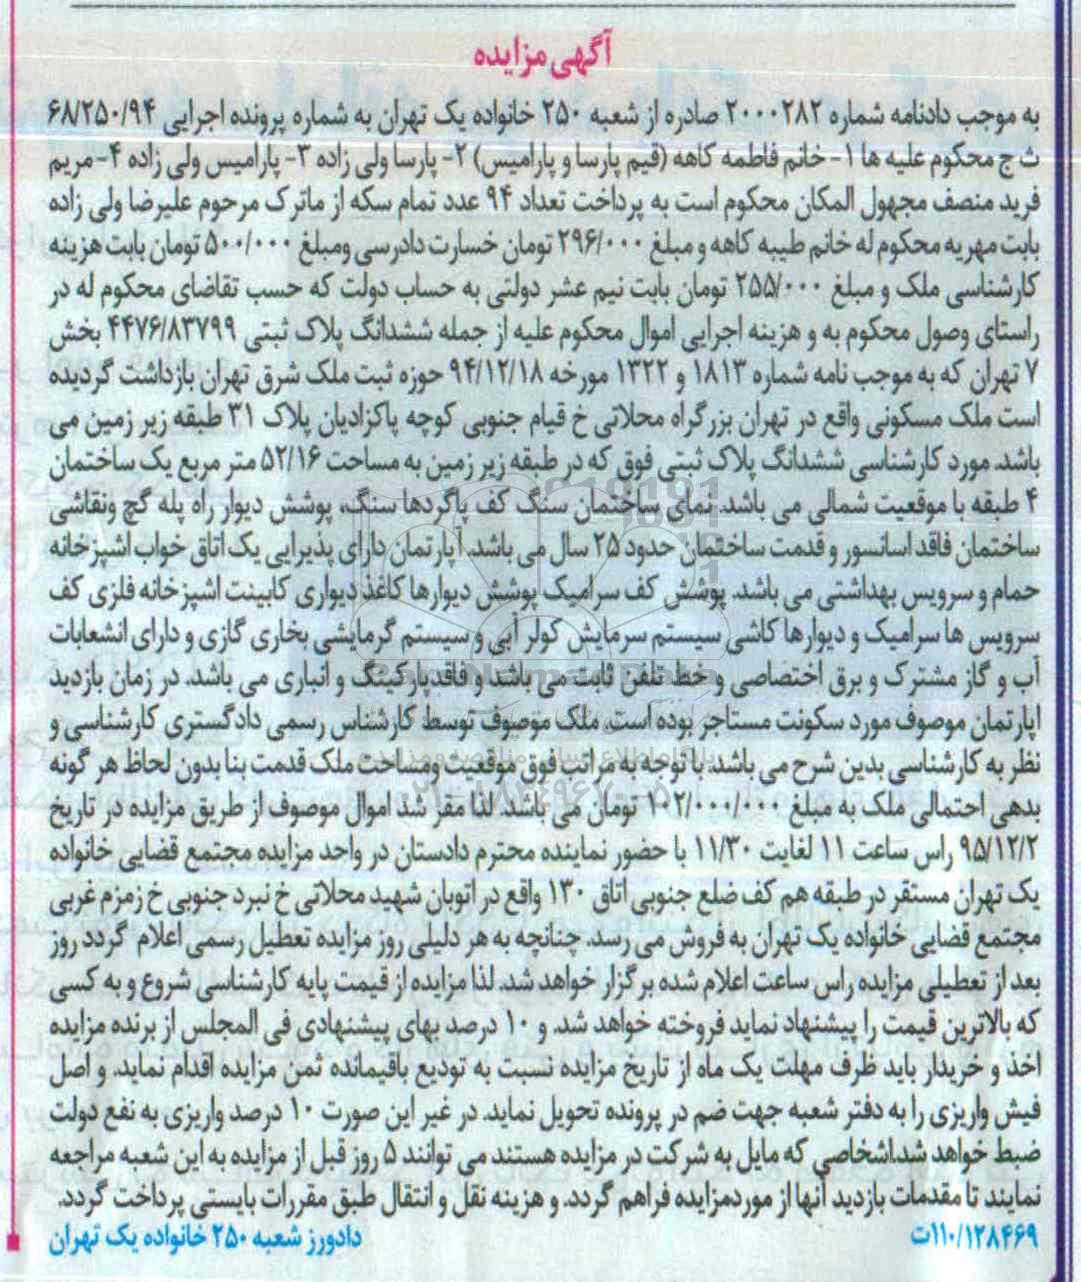 آگهی مزایده
به موجب دادنامه شماره ۲۰۰۰۲۸۲ صادره از شعبه ۲۵۰ خانواده یک تهران به شماره پرونده اجرایی ۶۸/۲۵۰/۹۴
ث ج محکوم علیه ها ۱- خانم فاطمه کاهه (قیم پارسا و پارامیس) ۲- پارسا ولی زاده ۳- پارامیس ولی زاده ۴- مریم
فرید منصف مجهول المکان محکوم است به پرداخت تعداد ۹۴ عدد تمام سکه از ماترک مرحوم علیرضا ولی زاده
بابت مهریه محکوم له خانم طیبه کاهه و مبلغ ۲۹۶/۰۰۰ تومان خسارت دادرسی ومبلغ ۵۰۰/۰۰۰ تومان بابت هزینه
کارشناسی ملک و مبلغ ۲۵۵/۰۰۰ تومان بابت نیم عشر دولتی به حساب دولت که حسب تقاضای محکوم له در
راستای وصول محکوم به و هزینه اجرایی اموال محکوم علیه از جمله ششدانگ پلاک ثبتی ۴۴۷۶/۸۳۷۹۹ بخش
۷ تهران که به موجب نامه شماره ۱۸۱۳ و ۱۳۲۲ مورخه ۹۴/۱۲/۱۸ حوزه ثبت ملک شرق تهران بازداشت گردیده
است ملک مسکونی واقع در تهران بزرگراه محلاتی خ قیام جنوبی کوچه پاکزادیان پلاک ۳۱ طبقه زیر زمین می
باشد. مورد کارشناسی ششدانگ پلاک ثبتی فوق که در طبقه زیر زمین به مساحت ۵۲/۱۶ متر مربع یک ساختمان
۴ طبقه با موقعیت شمالی می باشد. نمای ساختمان سنگ کف پاگردها سنگ، پوشش دیوار راه پله گچ ونقاشی
ساختمان فاقد اسانسور و قدمت ساختمان حدود ۲۵ سال می باشد. آپارتمان دارای پذیرایی یک اتاق خواب اشپزخانه
حمام و سرویس بهداشتی می باشد. پوشش کف سرامیک پوشش دیوارها کاغذ دیواری کابینت اشپزخانه فلزی کف
سرویس ها سرامیک و دیوارها کاشی سیستم سرمایش کولر آبی و سیستم گرمایشی بخاری گازی و دارای انشعابات
آب و گاز مشترک و برق اختصاصی و خط تلفن ثابت می باشد و فاقد پارکینگ و انباری می باشد. در زمان بازدید
اپارتمان موصوف مورد سکونت مستاجر بوده است. ملک موصوف توسط کارشناس رسمی دادگستری کارشناسی و
نظر به کارشناسی بدین شرح می باشد. با توجه به مراتب فوق موقعیت ومساحت ملک قدمت بنا بدون لحاظ هر گونه
بدهی احتمالی ملک به مبلغ ۱۰۲/۰۰۰/۰۰۰ تومان می باشد. لذا مقر شد اموال موصوف از طریق مزایده در تاریخ
۹۵/۱۲/۲ راس ساعت ۱۱ لغایت ۱۱/۳۰ با حضور نماینده محترم دادستان در واحد مزایده مجتمع قضایی خانواده
یک تهران مستقر در طبقه هم کف ضلع جنوبی اتاق ۱۳۰ واقع در اتوبان شهید محلاتی خ نبرد جنوبی خ زمزم غربی
مجتمع قضایی خانواده یک تهران به فروش می رسد. چنانچه به هر دلیلی روز مزایده تعطیل رسمی اعلام گردد روز
بعد از تعطیلی مزایده راس ساعت اعلام شده برگزار خواهد شد. لذا مزایده از قیمت پایه کارشناسی شروع و به کسی
که بالاترین قیمت را پیشنهاد نماید فروخته خواهد شد. و ۱۰ درصد بهای پیشنهادی فی المجلس از برنده مزایده
اخذ و خریدار باید ظرف مهلت یک ماه از تاریخ مزایده نسبت به تودیع باقیمانده ثمن مزایده اقدام نماید. و اصل
فیش واریزی را به دفتر شعبه جهت ضم در پرونده تحویل نماید. در غیر این صورت ۱۰ درصد واریزی به نفع دولت
ضبط خواهد شد.اشخاصی که مایل به شرکت در مزایده هستند می توانند ۵ روز قبل از مزایده به این شعبه مراجعه
نمایند تا مقدمات بازدید آنها از موردمزایده فراهم گردد. و هزینه نقل و انتقال طبق مقررات بایستی پرداخت گردد.
۱۱۰/۱۲۸۴۶۹ت
دادورز شعبه ۲۵۰ خانواده یک تهران